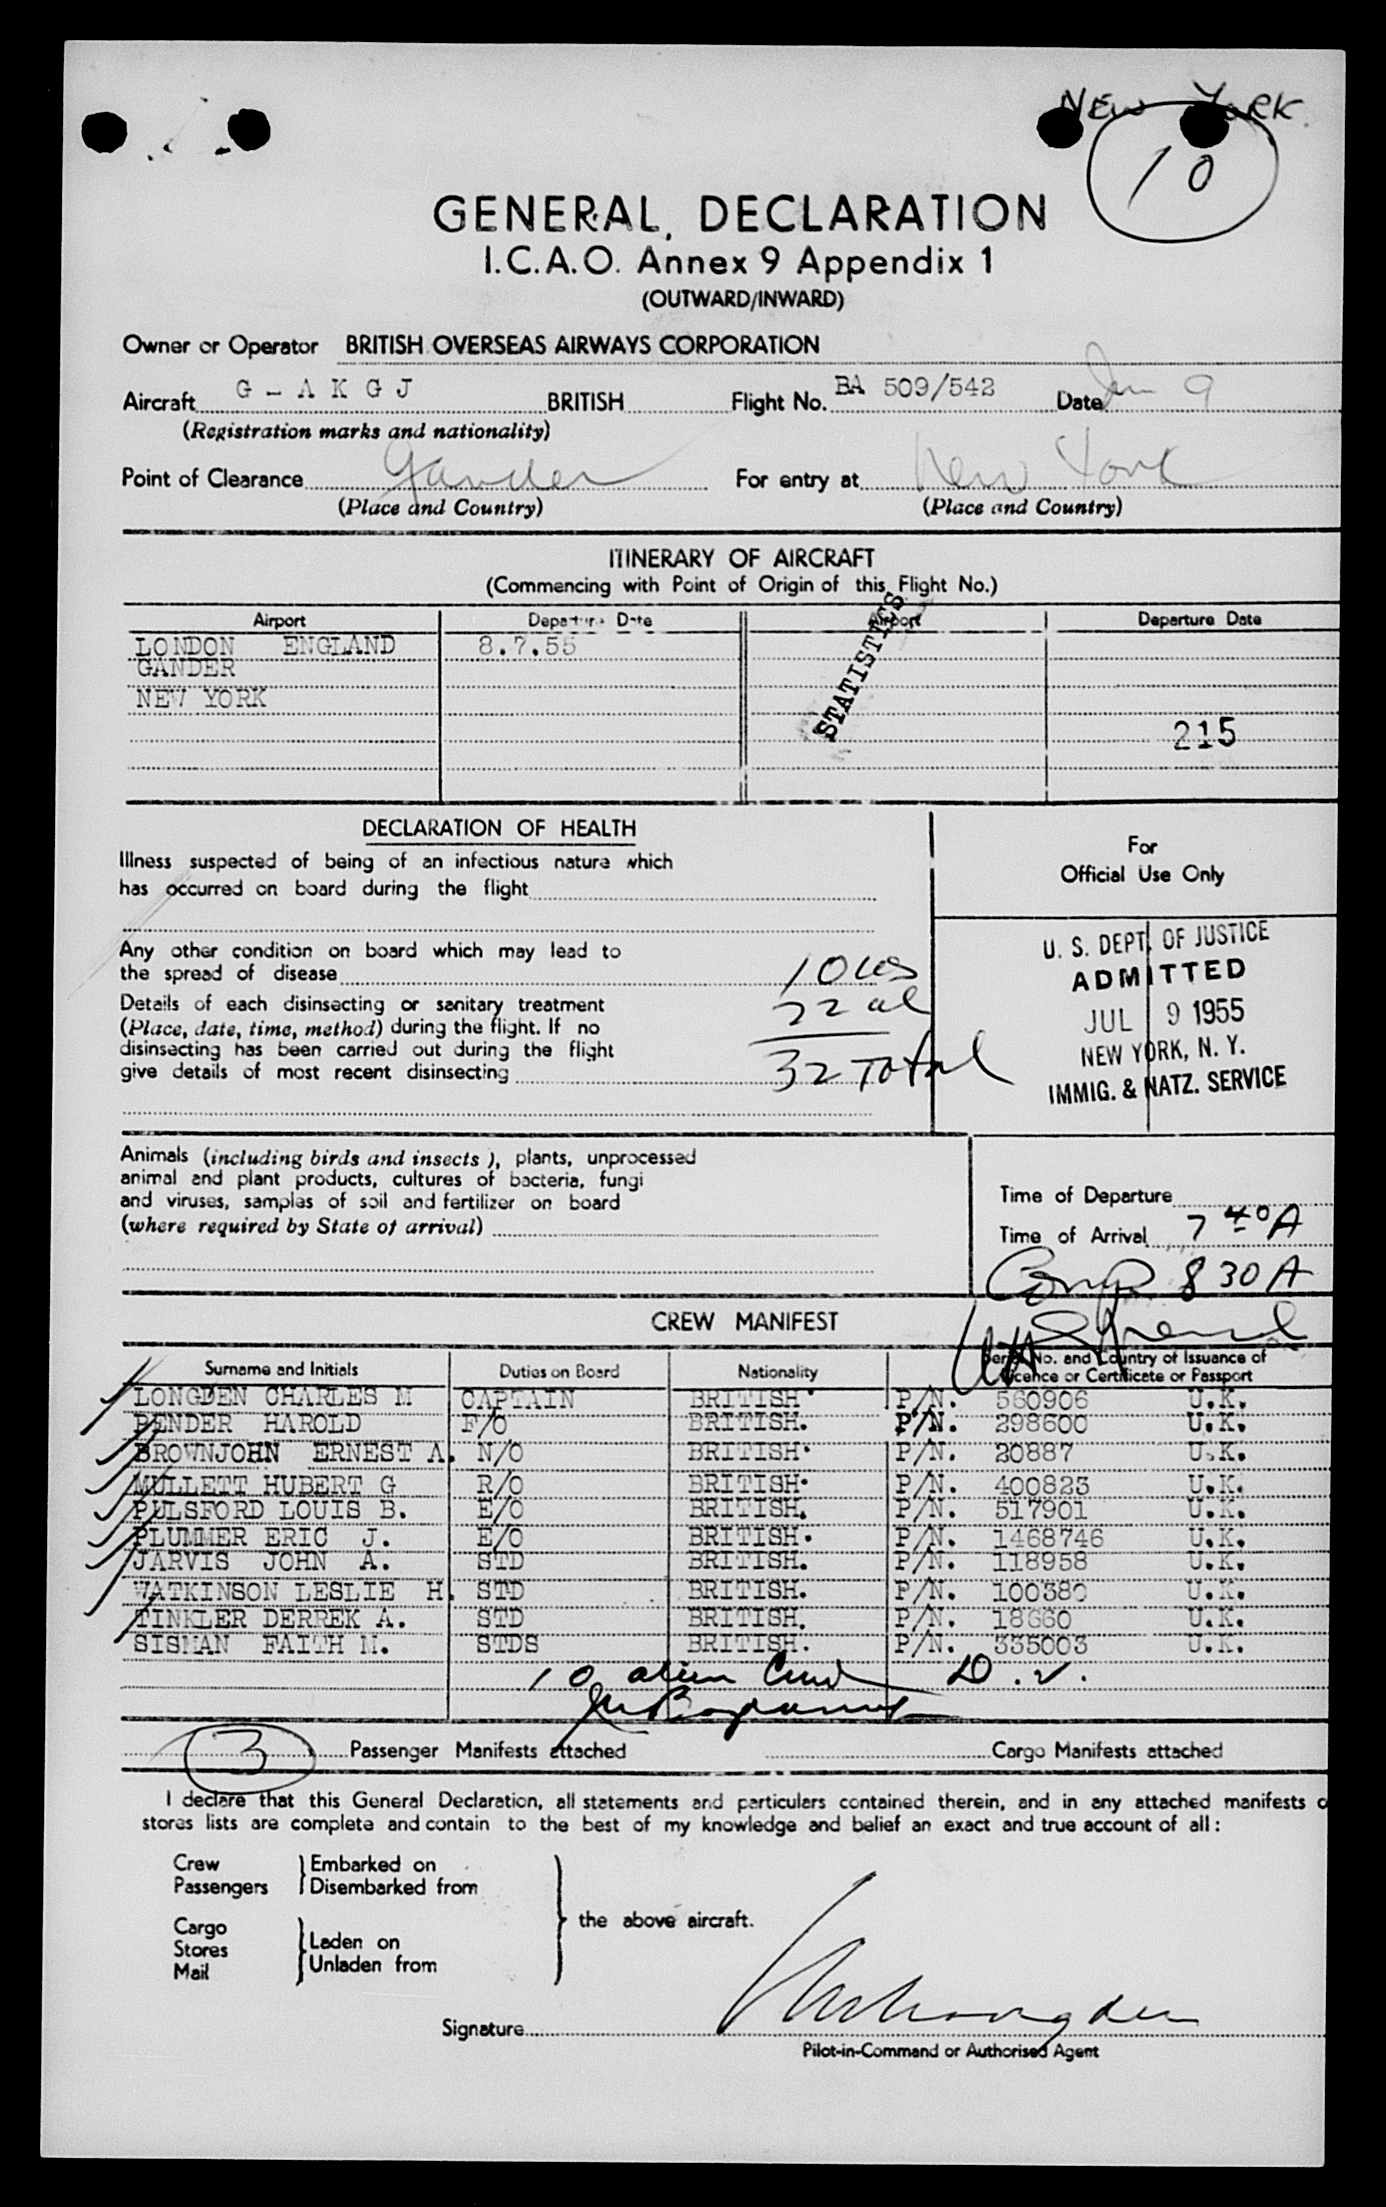 NEW YORK
10
GENERAL DECLARATION
I.C.A.O. Annex 9 Appendix 1
(OUTWARD/INWARD)
Owner or Operator BRITISH OVERSEAS AIRWAYS CORPORATION
Aircraft G - A K G J BRITISH Flight No. BA 509/542 Date 9
(Registration marks and nationality)
Point of Clearance Gander For entry at New York
(Place and Country) (Place and Country)
ITINERARY OF AIRCRAFT
(Commencing with Point of Origin of this Flight No.)
Airport Departure Date Airport Departure Date
LONDON ENGLAND 8.7.55
GANDER
NEW YORK
STATISTICS
215
DECLARATION OF HEALTH
Illness suspected of being of an infectious nature which
has occurred on board during the flight
Any other condition on board which may lead to
the spread of disease
Details of each disinsecting or sanitary treatment
(Place, date, time, method) during the flight. If no
disinsecting has been carried out during the flight
give details of most recent disinsecting
10 us
22 al
32 Total
For
Official Use Only
U. S. DEPT. OF JUSTICE
ADMITTED
JUL 9 1955
NEW YORK, N. Y.
IMMIG. & NATZ. SERVICE
Animals (including birds and insects), plants, unprocessed
animal and plant products, cultures of bacteria, fungi
and viruses, samples of soil and fertilizer on board
(where required by State of arrival)
Time of Departure
Time of Arrival 7 40 A
Comp 8 30 A
CREW MANIFEST
Surname and Initials Duties on Board Nationality Serial No. and Country of Issuance of
Licence or Certificate or Passport
LONGDEN CHARLES M CAPTAIN BRITISH P/N. 560906 U.K.
BENDER HAROLD F/O BRITISH. P/N. 298600 U.K.
BROWNJOHN ERNEST A. N/O BRITISH. P/N. 20887 U.K.
MULLETT HUBERT G R/O BRITISH. P/N. 400823 U.K.
PULSFORD LOUIS B. E/O BRITISH. P/N. 517901 U.K.
PLUMMER ERIC J. E/O BRITISH. P/N. 1468746 U.K.
JARVIS JOHN A. STD BRITISH. P/N. 118958 U.K.
WATKINSON LESLIE H. STD BRITISH. P/N. 100380 U.K.
TINKLER DERREK A. STD BRITISH. P/N. 18660 U.K.
SISMAN FAITH M. STDS BRITISH. P/N. 335003 U.K.
10 alien Crew D.V.
3 Passenger Manifests attached Cargo Manifests attached
I declare that this General Declaration, all statements and particulars contained therein, and in any attached manifests
stores lists are complete and contain to the best of my knowledge and belief an exact and true account of all:
Crew Embarked on
Passengers Disembarked from
the above aircraft.
Cargo
Stores Laden on
Mail Unladen from
Signature
Pilot-in-Command or Authorised Agent